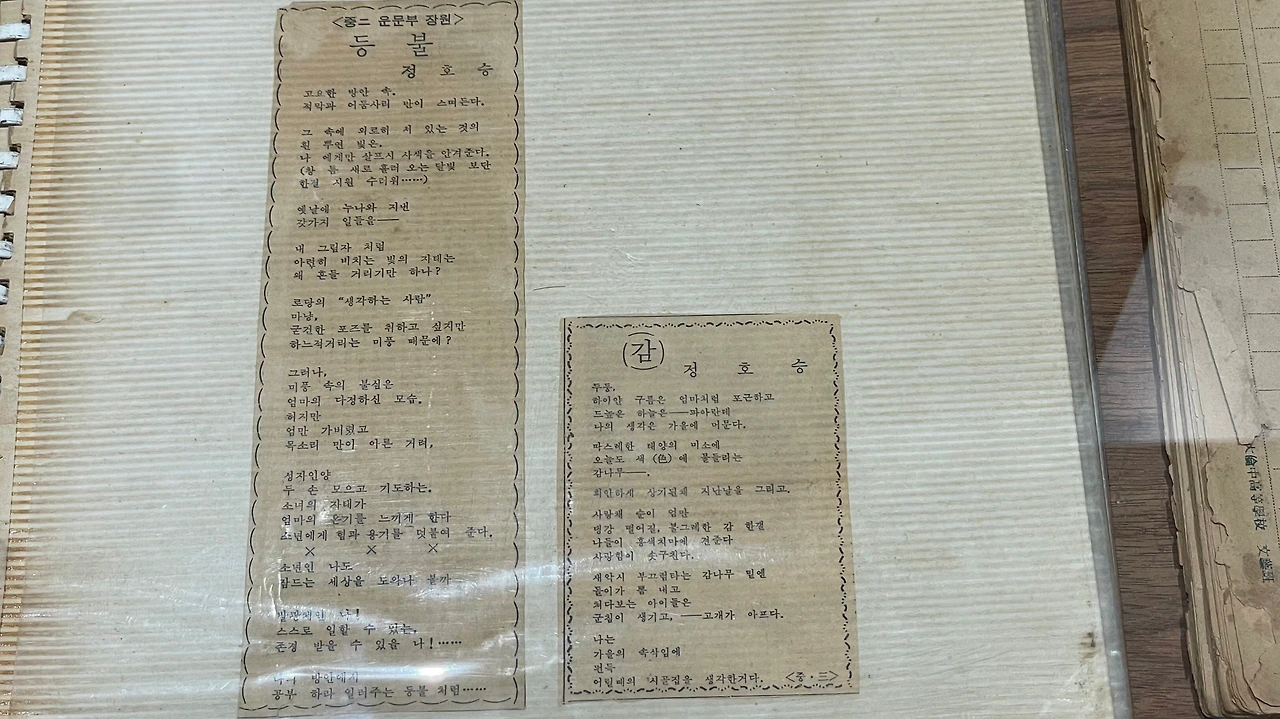 <중二 운문부 장원>
등 불
정 호 승
고요한 방안 속.
적막과 어둠사리 만이 스며든다.
그 속에 외로히 서 있는 것의
흰 뿌연 빛은,
나 에게만 살프시 사색을 안겨준다.
(창 틈 새로 흘러 오는 달빛 보단
한결 시원 수러워……)
옛날에 누나와 지낸
갖가지 일들을——
내 그림자 처럼
아련히 비치는 빛의 자태는
왜 흔들 거리기만 하나?
로댕의 “생각하는 사람”
마냥,
굳건한 포즈를 취하고 싶지만
하느적거리는 미풍 때문에?
그러나,
미풍 속의 불심은
엄마의 다정하신 모습.
허지만
엄만 가버렸고
목소리 만이 아른 거려,
성자인양
두 손 모으고 기도하는.
소녀의 자태가
엄마의 온기를 느끼게 한다
소년에게 힘과 용기를 덧붙여 준다.
× × ×
소년인 나도
잠드는 세상을 도와나 볼까
나!
스스로 일할 수 있는,
존경 받을 수 있을 나!……
방안에서
공부 하라 일러주는 등불 처럼……
(감)
정 호 승
두둥,
하이얀 구름은 엄마처럼 포근하고
드높은 하늘은——파아란데
나의 생각은 가을에 머문다.
따스레한 태양의 미소에
오늘도 새 (色) 에 물들려는
감나무——.
희안하게 상기된채 지난날을 그리고,
사랑채 순이 엄만
땡감 떨어질, 불그레한 감 한껼
나들이 홍색치마에 견준다
사랑합이 솟구친다.
새악시 부끄럼타는 감나무 밑엔
돌이가 폼 내고
쳐다보는 아이들은
군침이 생기고, ——고개가 아프다.
나는
가을의 속삭임에
펀득
어릴때의 시골집을 생각한거다.
<중·三>